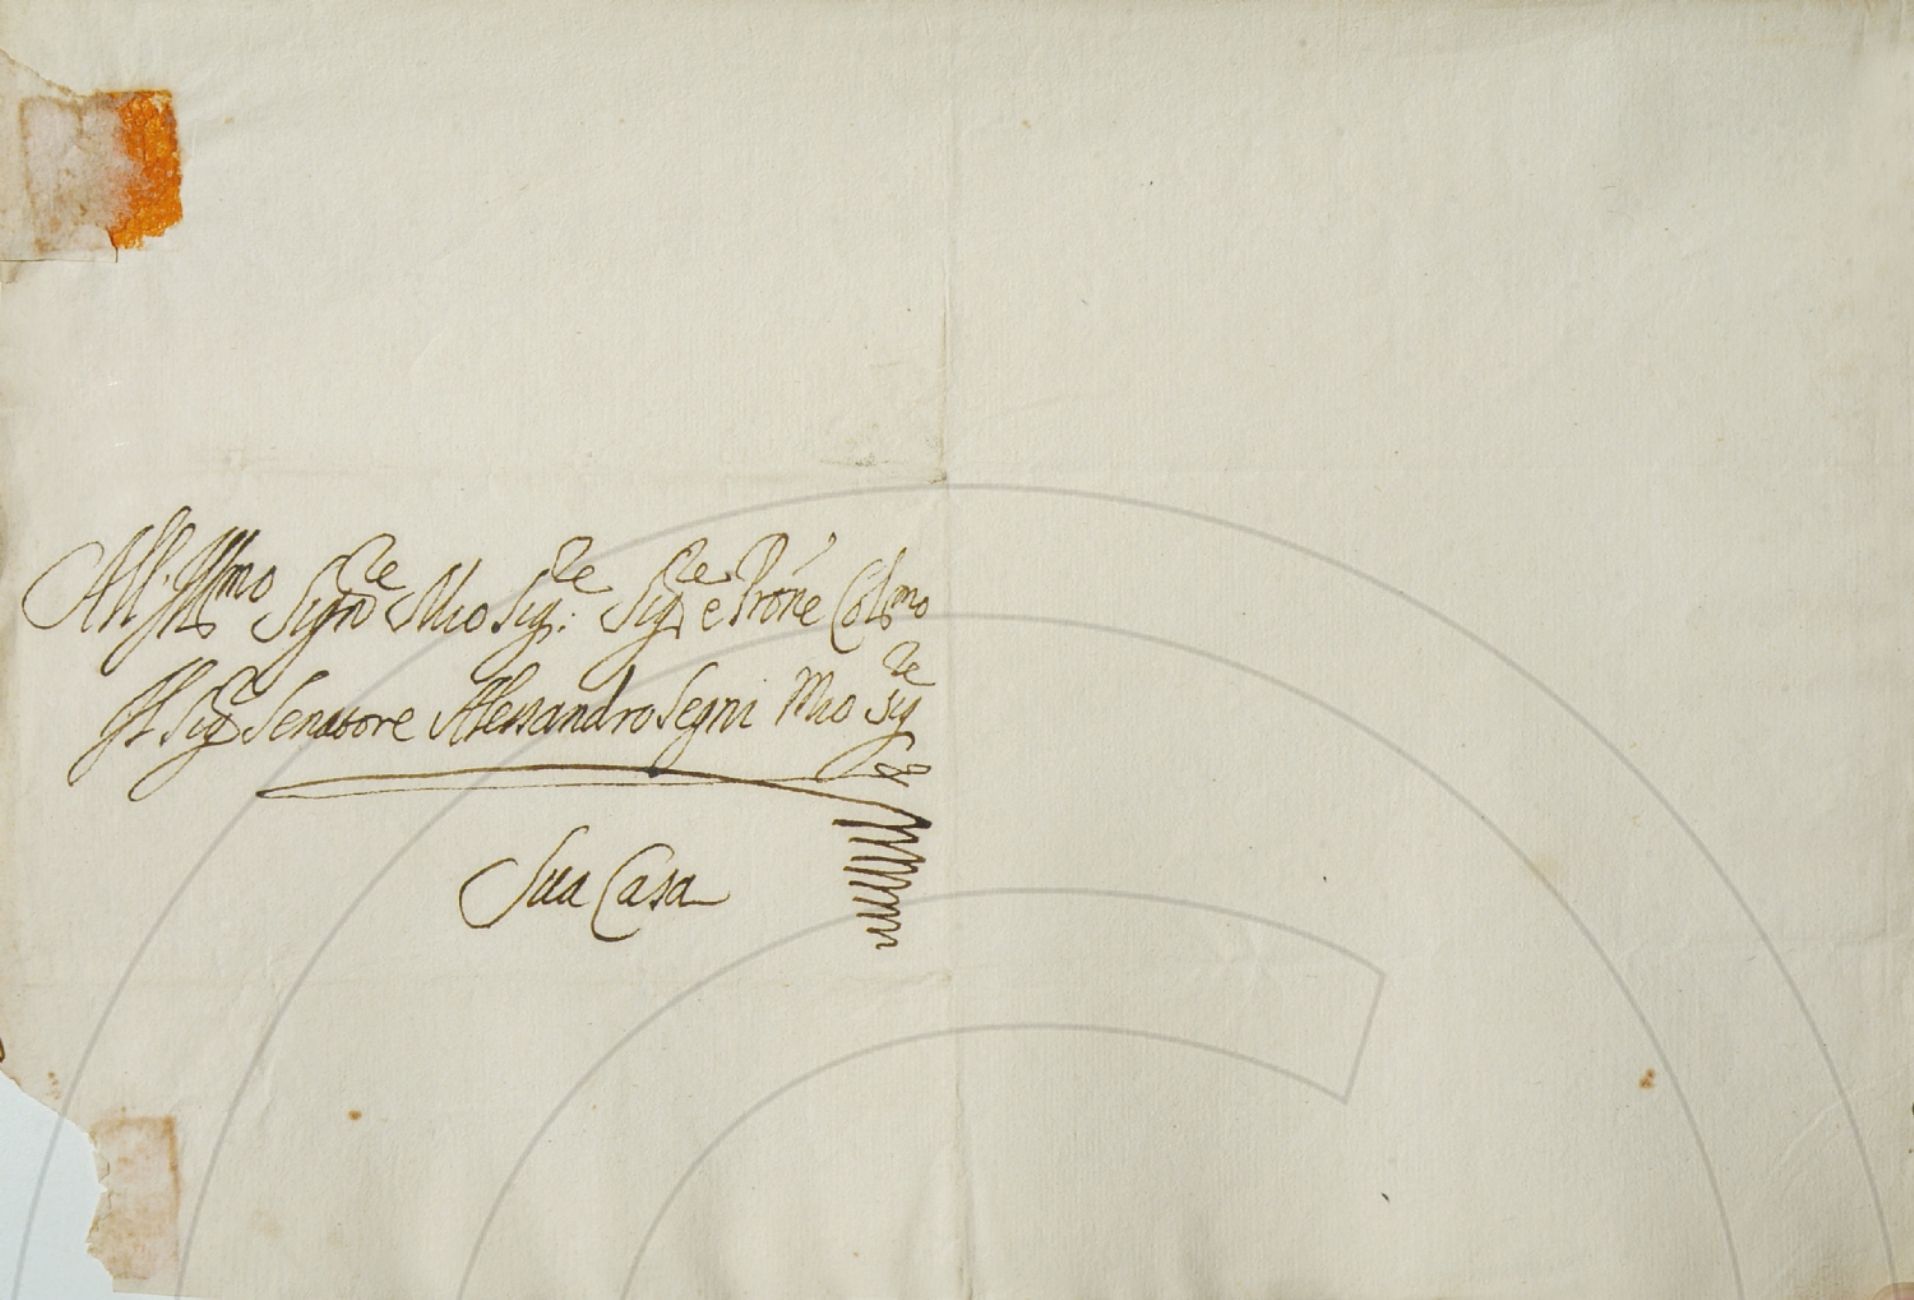 All' Ill.mo Sign.re Mio Sig.re: Sig.re e Pron̄e Col.mo
Il Sig.r Senatore Alessandro Segni Mio Sig.re
Sua Casa